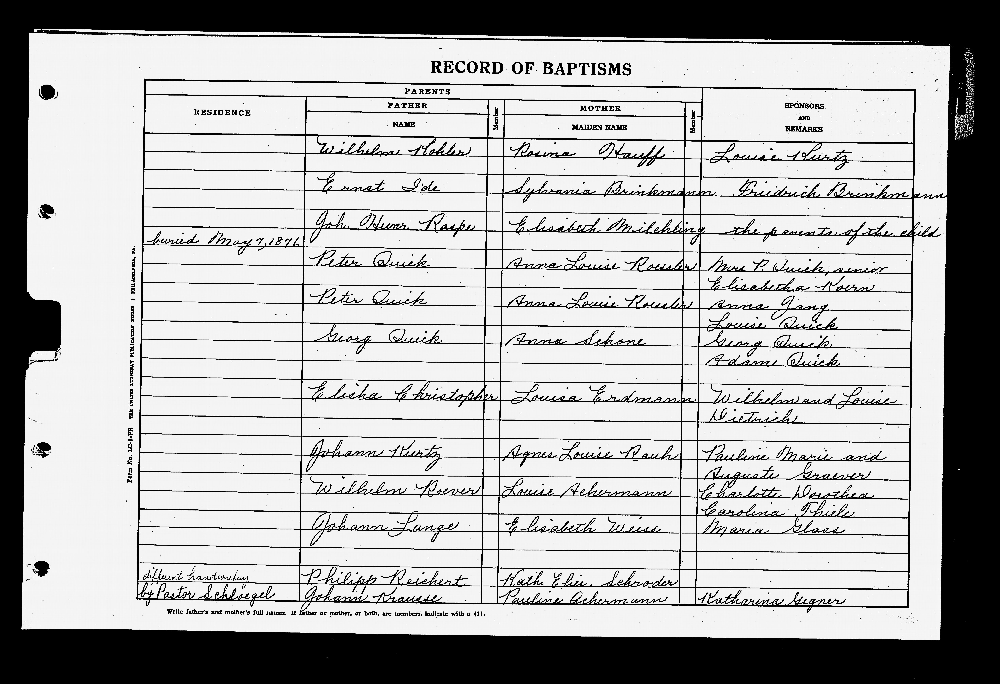 RECORD OF BAPTISMS
PARENTS
RESIDENCE
FATHER
Member
MOTHER
Member
SPONSORS
AND
REMARKS
NAME
MAIDEN NAME
Wilhelm Kohler Rosina Hauff Louise Kurtz
Ernst Ide Sylvania Brinkmann Friedrich Brinkmann
Joh. Henr. Raspe Elisabeth Milchling the parents of the child
buried May 7, 1876
Peter Quick Anna Louise Roessler Mrs P. Quick, senior
Elisabetha Koern
Peter Quick Anna Louise Roessler Anna Jung
Louise Quick
Georg Quick Anna Schone Georg Quick
Adam Quick
Elisha Christopher Louisa Erdmann Wilhelm and Louise
Dietrich
Johann Kurtz Agnes Louise Rauh Pauline Marie and
Auguste Graever
Wilhelm Roever Louise Achermann Charlotte Dorothea
Carolina Thiele
Johann Lange Elisabeth Weiss Maria Glass
different handwriting Philipp Reichert Kath. Elis. Schroder
by Pastor Schloegel Johann Krausse Pauline Achermann Katharina Gegner
Write father's and mother's full names. If father or mother, or both, are members, indicate with a (M).